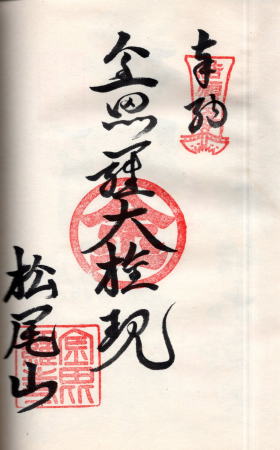 奉納
金毘羅大権現
松尾山